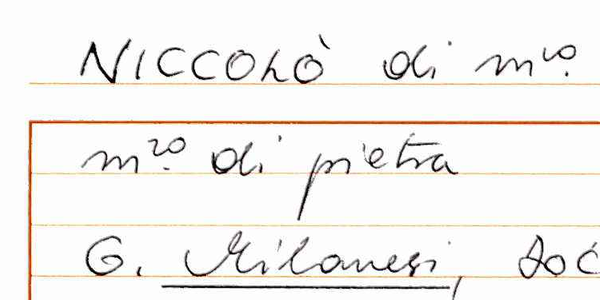 NICCOLÒ di m.ro
m.ro di pietra
G. Milanesi, Doc